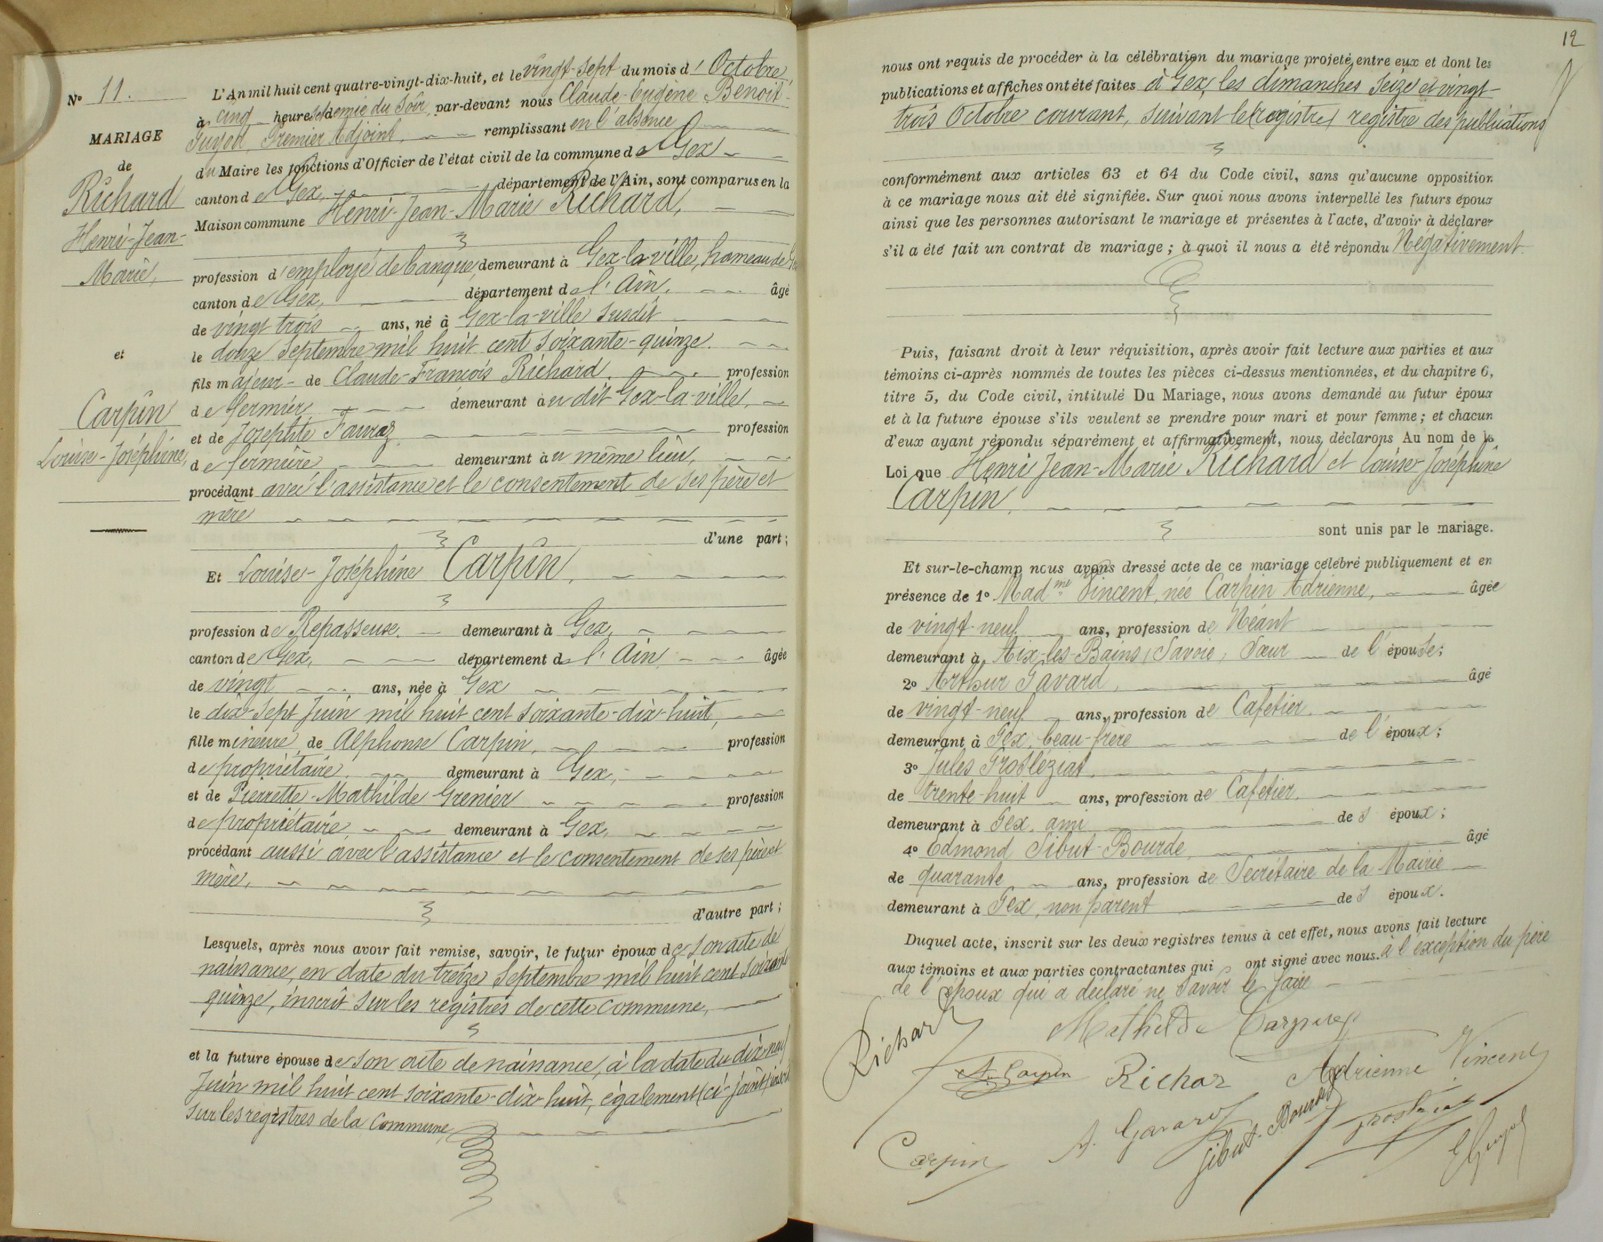 N° 11.
MARIAGE
de
Richard
Henri-Jean-
Marie,
et
Carpin
Louise-Joséphine,
L'An mil huit cent quatre-vingt-dix-huit, et le vingt-sept du mois d'Octobre,
à cinq heures & demie du soir, par-devant nous Claude-Eugène Benoit-
Guyod, Premier Adjoint, remplissant en l'absence
du Maire les fonctions d'Officier de l'état civil de la commune de Gex
canton de Gex, département de l'Ain, sont comparus en la
Maison commune Henri-Jean-Marie Richard,
profession d'employé de banque, demeurant à Gex-la-ville, hameau de
canton de Gex, département de l'Ain, âgé
de vingt trois ans, né à Gex-la-ville susdit
le douze Septembre mil huit cent soixante-quinze.
fils majeur de Claude-François Richard, profession
de fermier, demeurant au dit Gex-la-ville,
et de Josephte Favraz profession
de fermière demeurant au même lieu,
procédant avec l'assistance et le consentement de ses père et
mère
d'une part;
Et Louise-Joséphine Carpin,
profession de Repasseuse, demeurant à Gex,
canton de Gex, département de l'Ain, âgée
de vingt ans, née à Gex
le dix-sept Juin mil huit cent soixante-dix-huit,
fille mineure de Alphonse Carpin, profession
de propriétaire, demeurant à Gex,
et de Pierrette-Mathilde Grenier profession
de propriétaire, demeurant à Gex,
procédant aussi avec l'assistance et le consentement de ses père et
mère,
d'autre part;
Lesquels, après nous avoir fait remise, savoir, le futur époux de son acte de
naissance, en date du treize Septembre mil huit cent soixante
quinze, inscrit sur les registres de cette commune,
et la future épouse de son acte de naissance, à la date du dix-neuf
Juin mil huit cent soixante-dix-huit, également (ci-joint) inscrit
sur les registres de la commune,
12
nous ont requis de procéder à la célébration du mariage projeté entre eux et dont les
publications et affiches ont été faites à Gex, les dimanches seize et vingt-
trois Octobre courant, suivant le (registre) registre des publications
conformément aux articles 63 et 64 du Code civil, sans qu'aucune opposition
à ce mariage nous ait été signifiée. Sur quoi nous avons interpellé les futurs époux
ainsi que les personnes autorisant le mariage et présentes à l'acte, d'avoir à déclarer
s'il a été fait un contrat de mariage; à quoi il nous a été répondu Négativement.
Puis, faisant droit à leur réquisition, après avoir fait lecture aux parties et aux
témoins ci-après nommés de toutes les pièces ci-dessus mentionnées, et du chapitre 6,
titre 5, du Code civil, intitulé Du Mariage, nous avons demandé au futur époux
et à la future épouse s'ils veulent se prendre pour mari et pour femme; et chacun
d'eux ayant répondu séparément et affirmativement, nous déclarons Au nom de la
Loi que Henri Jean-Marie Richard et Louise-Joséphine
Carpin,
sont unis par le mariage.
Et sur-le-champ nous avons dressé acte de ce mariage célébré publiquement et en
présence de 1° Mad.me Vincent, née Carpin Adrienne, âgée
de vingt-neuf ans, profession de Néant
demeurant à Aix-les-Bains, Savoie, Sœur de l'épouse;
2° Arthur Gavard, âgé
de vingt-neuf ans, profession de Cafetier.
demeurant à Gex, beau-frère de l'époux;
3° Jules Grosléziat
de trente-huit ans, profession de Cafetier.
demeurant à Gex, ami de s époux;
4° Edmond Sibut-Bourde, âgé
de quarante ans, profession de Secrétaire de la Mairie
demeurant à Gex, non parent de s époux.
Duquel acte, inscrit sur les deux registres tenus à cet effet, nous avons fait lecture
aux témoins et aux parties contractantes qui ont signé avec nous. à l'exception du père
de l'époux qui a déclaré ne savoir le faire
Richard Mathilde Carpin
A. Carpin Richar Adrienne Vincent
Carpin A. Gavard Sibut-Bourde Grosléziat